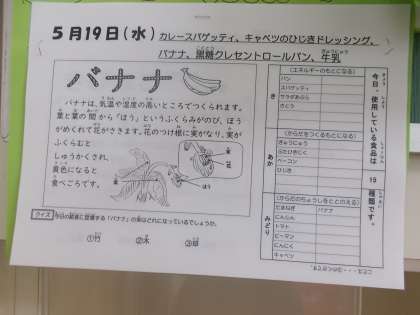 5月19日(水) カレースパゲッティ、キャベツのひじきドレッシング、
バナナ、黒糖クレセントロールパン、牛乳
バナナ
バナナは、気温や湿度の高いところでつくられます。
葉と葉の間から「ほう」というふくらみがのび、ほう
がめくれて花がさきます。花のつけ根に実がなり、実が
ふくらむと
しゅうかくされ、
黄色になると
食べごろです。
実
花
ほう
クイズ 今日の給食に登場する「バナナ」の実はどれになっているでしょうか。
①竹 ②木 ③草
今日、使用している食品は
19
種類です。
き
(エネルギーのもとになる)
パン
スパゲッティ
サラダあぶら
さとう
あか
(からだをつくるもとになる)
ぎゅうにゅう
ぶたひきにく
ベーコン
ひじき
みどり
(からだのちょうしをととのえる)
たまねぎ バナナ
にんじん
トマト
ピーマン
にんにく
キャベツ